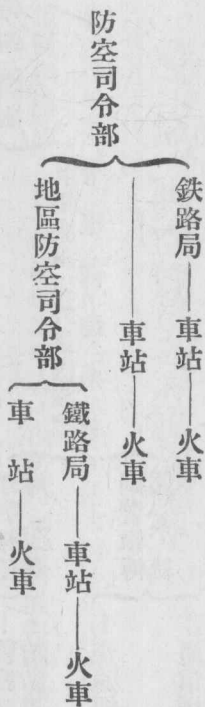 防空司令部
鉄路局——車站——火車
————車站——火車
地區防空司令部
鐵路局——車站——火車
車站——火車